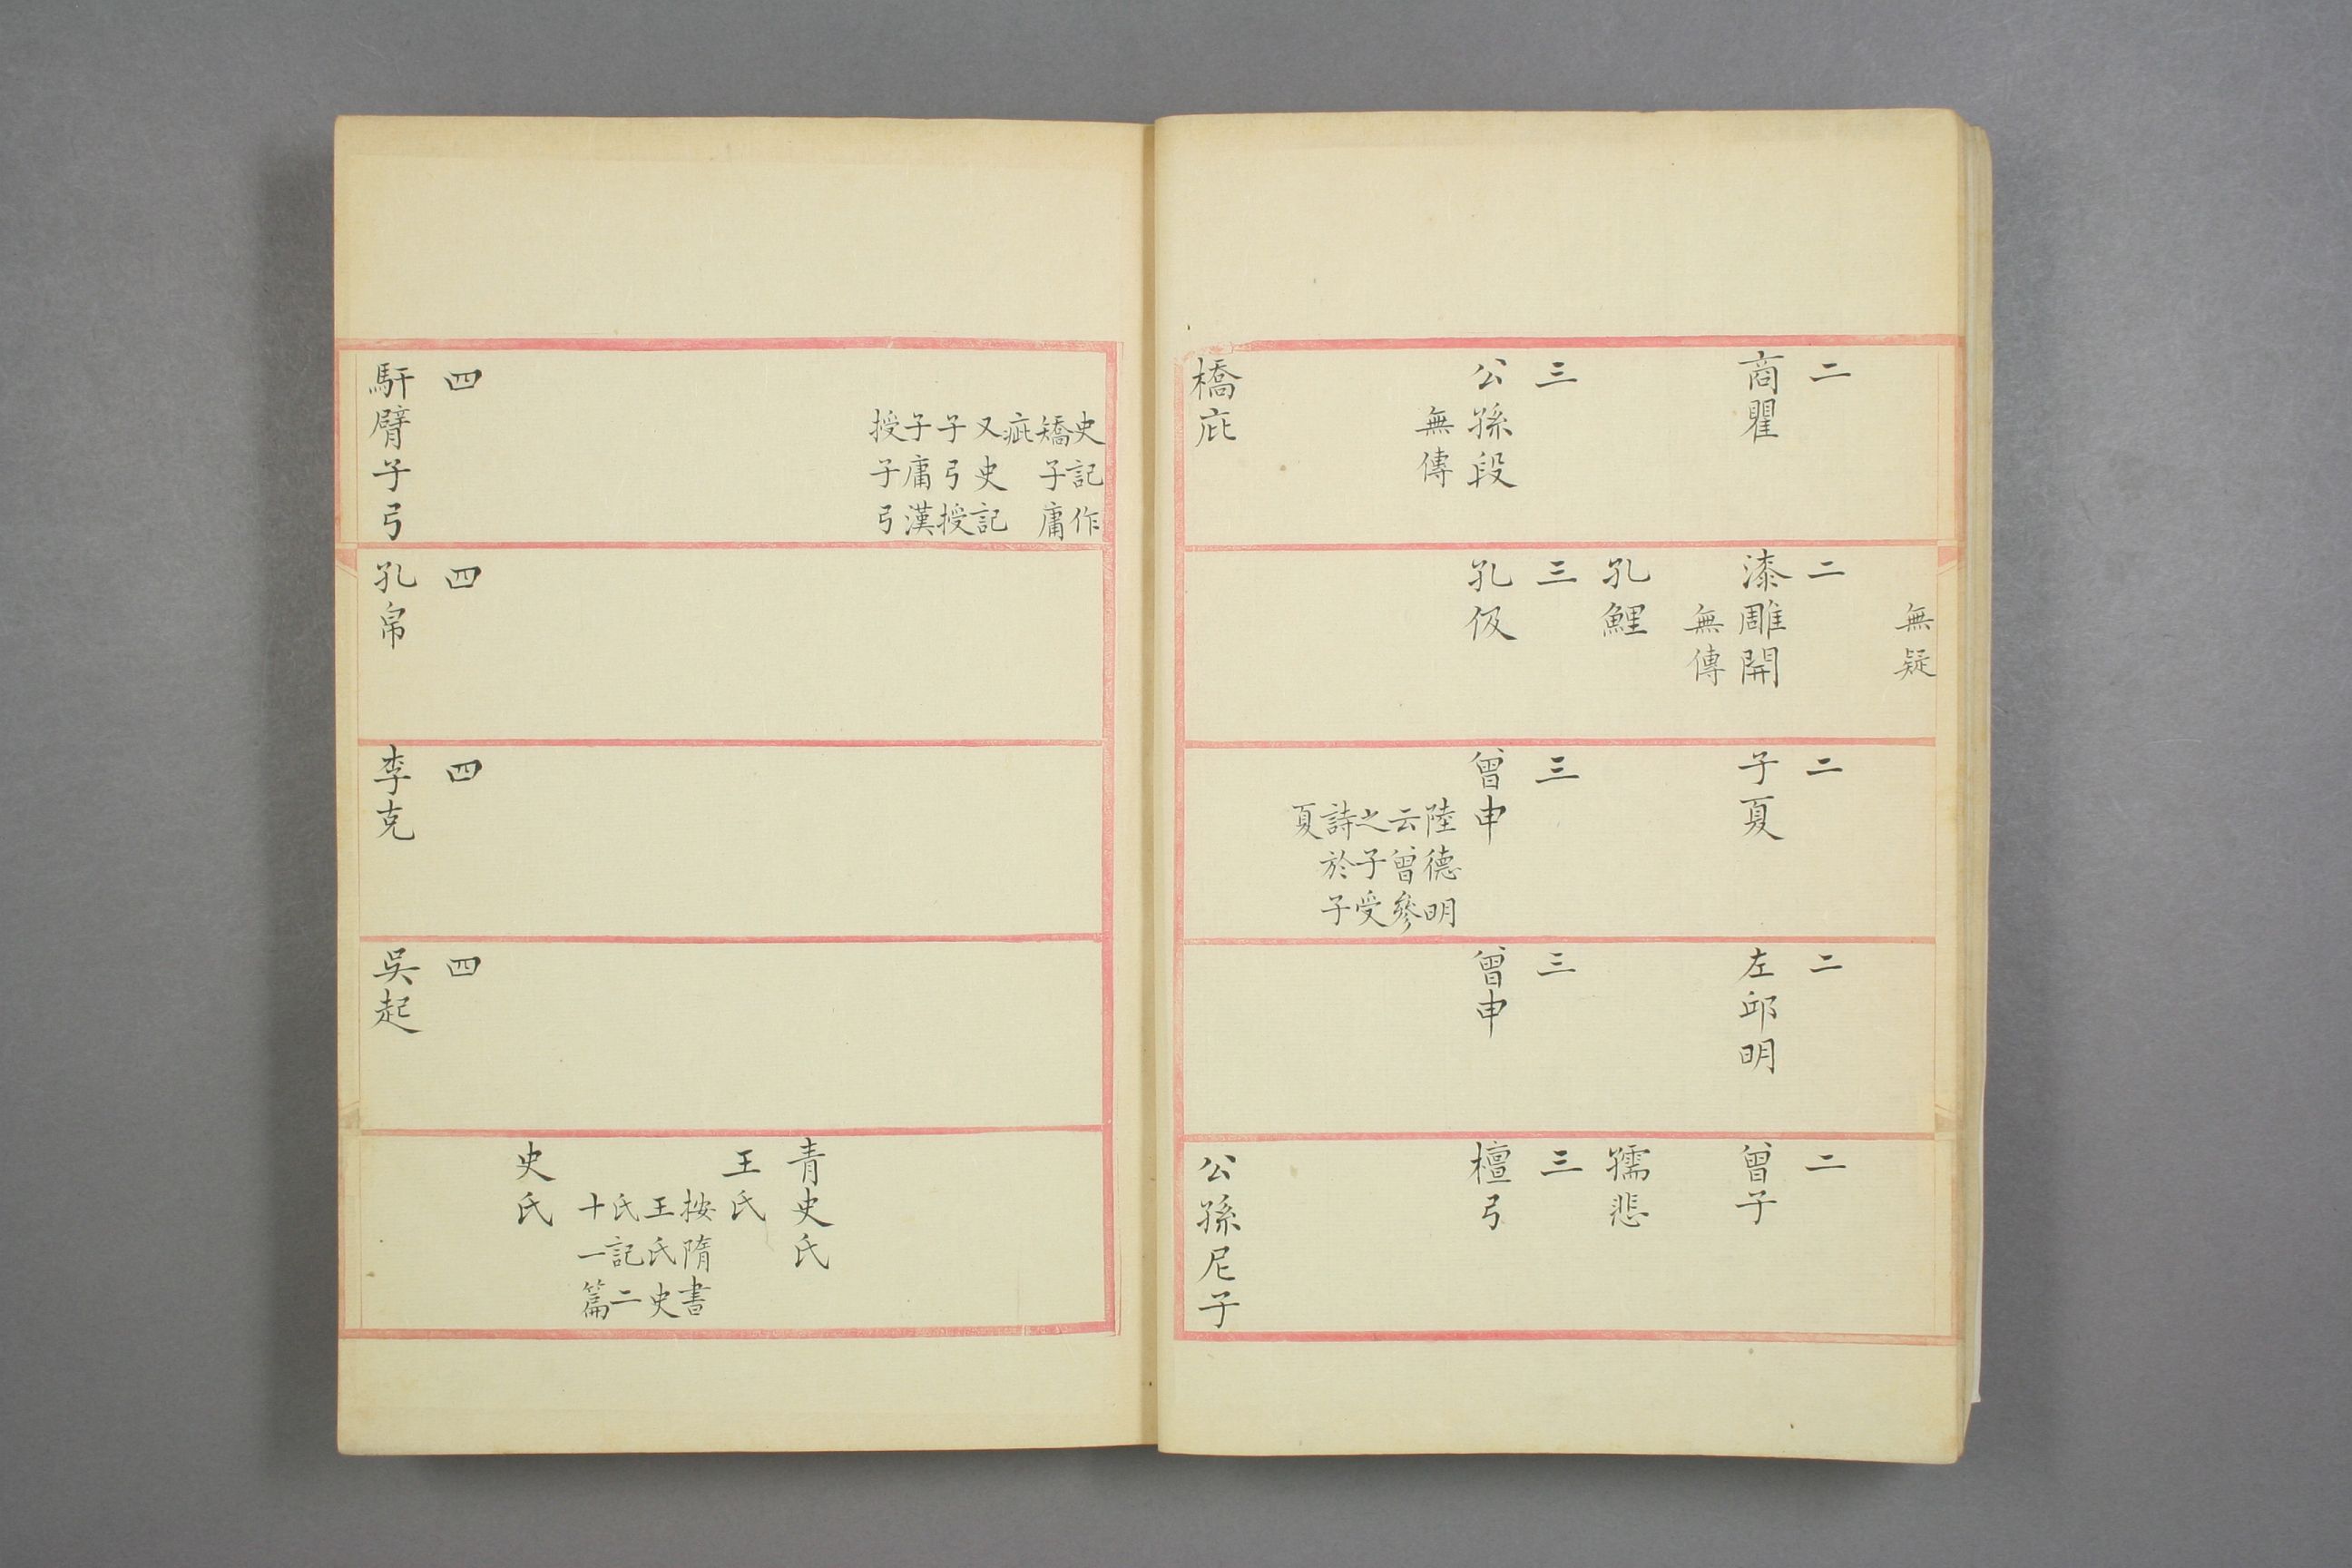 二
商瞿
三
公孫段
無傳
橋庇
無疑
二
漆雕開
無傳
孔鯉
三
孔伋
二
子夏
三
曾申
陸德明
云曾參
之子受
詩於子
夏
二
左邱明
三
曾申
二
曾子
孺悲
三
檀弓
公孫尼子
史記作
矯子庸
疵
又史記
子弓授
子庸漢
授子弓
四
馯臂子弓
四
孔帛
四
李克
四
吳起
青史氏
王氏
按隋書
王氏史
氏記二
十一篇
史氏